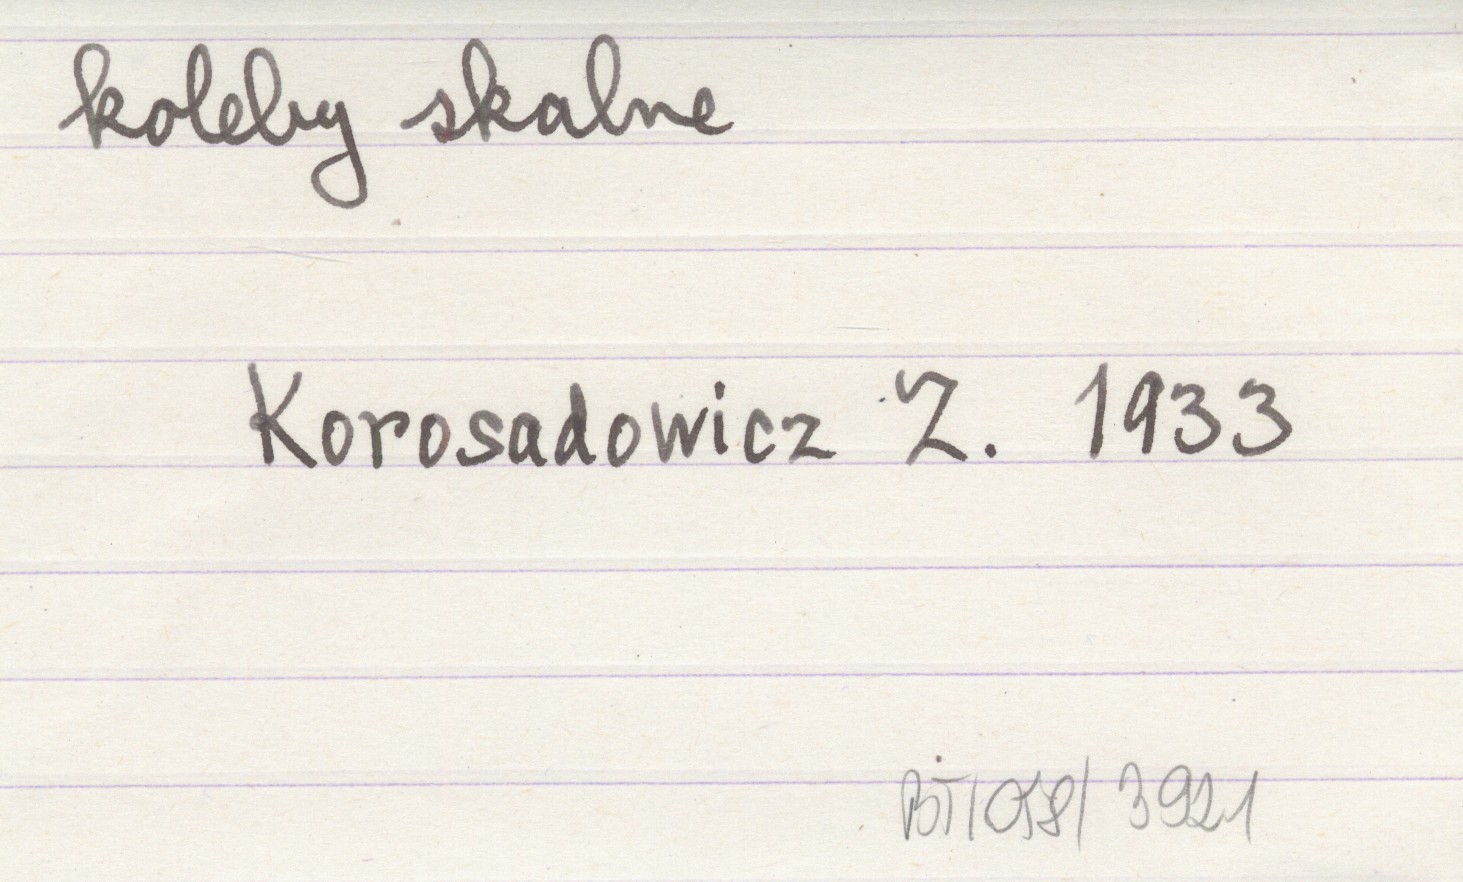 koleby skalne
Korosadowicz Z. 1933
BT/058/3921